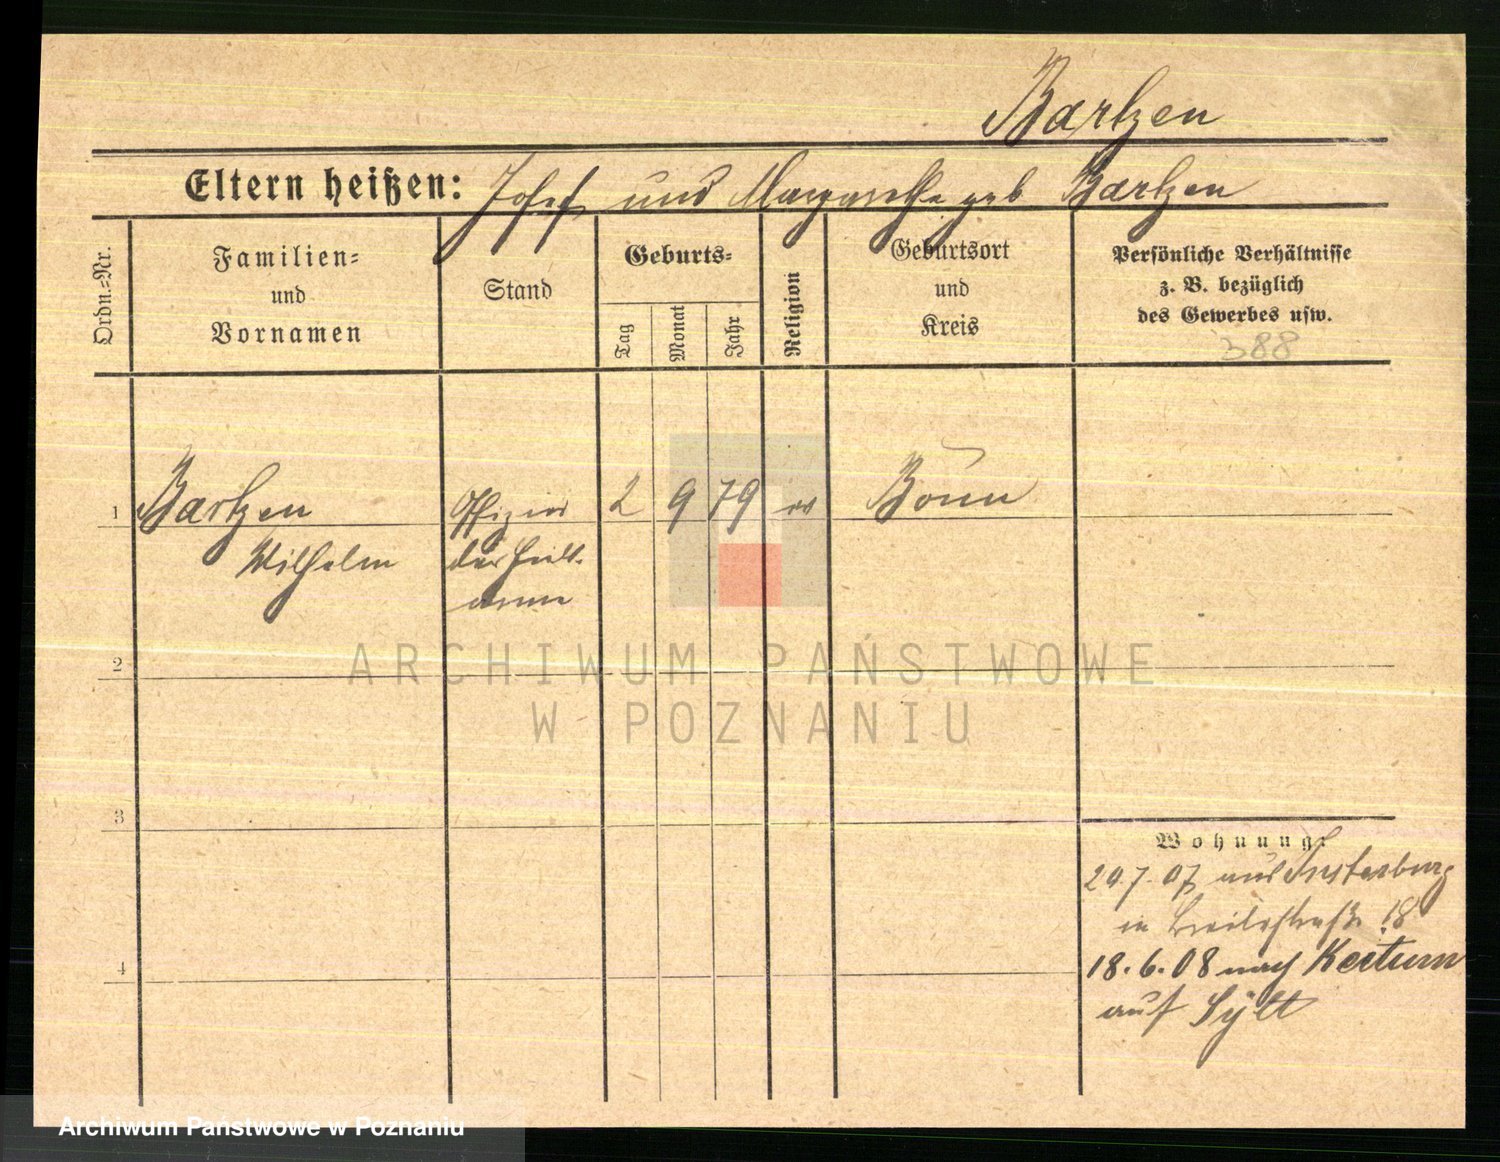 Bartzen
Eltern heißen: Josef und Margarethe geb Bartzen
Ordn.-Nr.
Familien-
und
Vornamen
Stand
Geburts-
Tag
Monat
Jahr
Religion
Geburtsort
und
Kreis
Persönliche Verhältnisse
z. B. bezüglich
des Gewerbes usw.
388
1 Bartzen Offizier 2 9 79 Bonn
Wilhelm der Heils-
armee
2
3
4
Wohnung:
20.7.07 aus Insterburg
in Breitestraße 18
18.6.08 nach Keitum
auf Sylt
ARCHIWUM PAŃSTWOWE
W POZNANIU
Archiwum Państwowe w Poznaniu